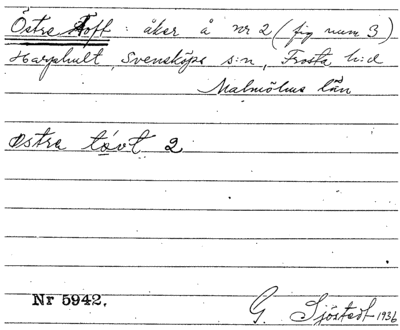 Östra Toft : åker å nr 2 (fig num 3)
Harphult, Svensköps s:n, Frosta h:d
Malmöhus län
østra tóvt 2
Nr 5942.
G. Sjöstedt 1936